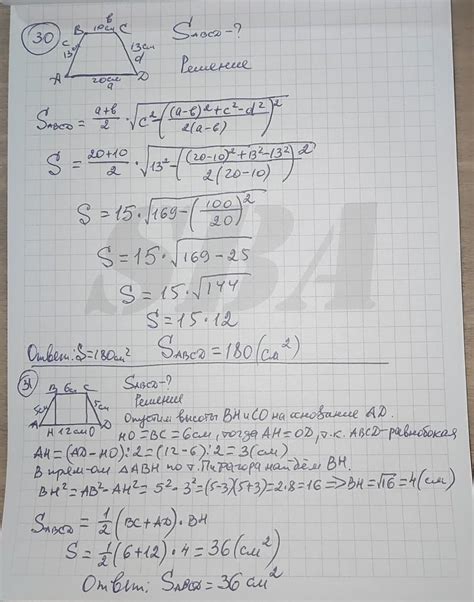 30
B 10см C
b
c 13
13см d
A 20см D
a
S_ABCD - ?
Решение
S_ABCD = (a+b)/2 · √(c² - (((a-b)² + c² - d²)/(2(a-b)))²)
S = (20+10)/2 · √(13² - (((20-10)² + 13² - 13²)/(2(20-10)))²)
S = 15 · √(169 - (100/20)²)
S = 15 · √(169 - 25)
S = 15 · √144
S = 15 · 12
Ответ: S = 180см² S_ABCD = 180 (см²)
31
B 6см C
5см 5см
A H 12см O D
S_ABCD - ?
Решение
Опустим высоты BH и CO на основание AD.
HO = BC = 6см, тогда AH = OD, т.к. ABCD - равнобокая
AH = (AD - HO) : 2 = (12 - 6) : 2 = 3 (см)
В прям-ом △ABH по т. Пифагора найдём BH.
BH² = AB² - AH² = 5² - 3² = (5-3)(5+3) = 2·8 = 16 => BH = √16 = 4 (см)
S_ABCD = 1/2 (BC + AD) · BH
S = 1/2 (6 + 12) · 4 = 36 (см²)
Ответ: S_ABCD = 36 см²
SBA